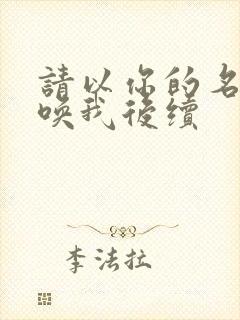 請以你的名
喚我後續
李法拉